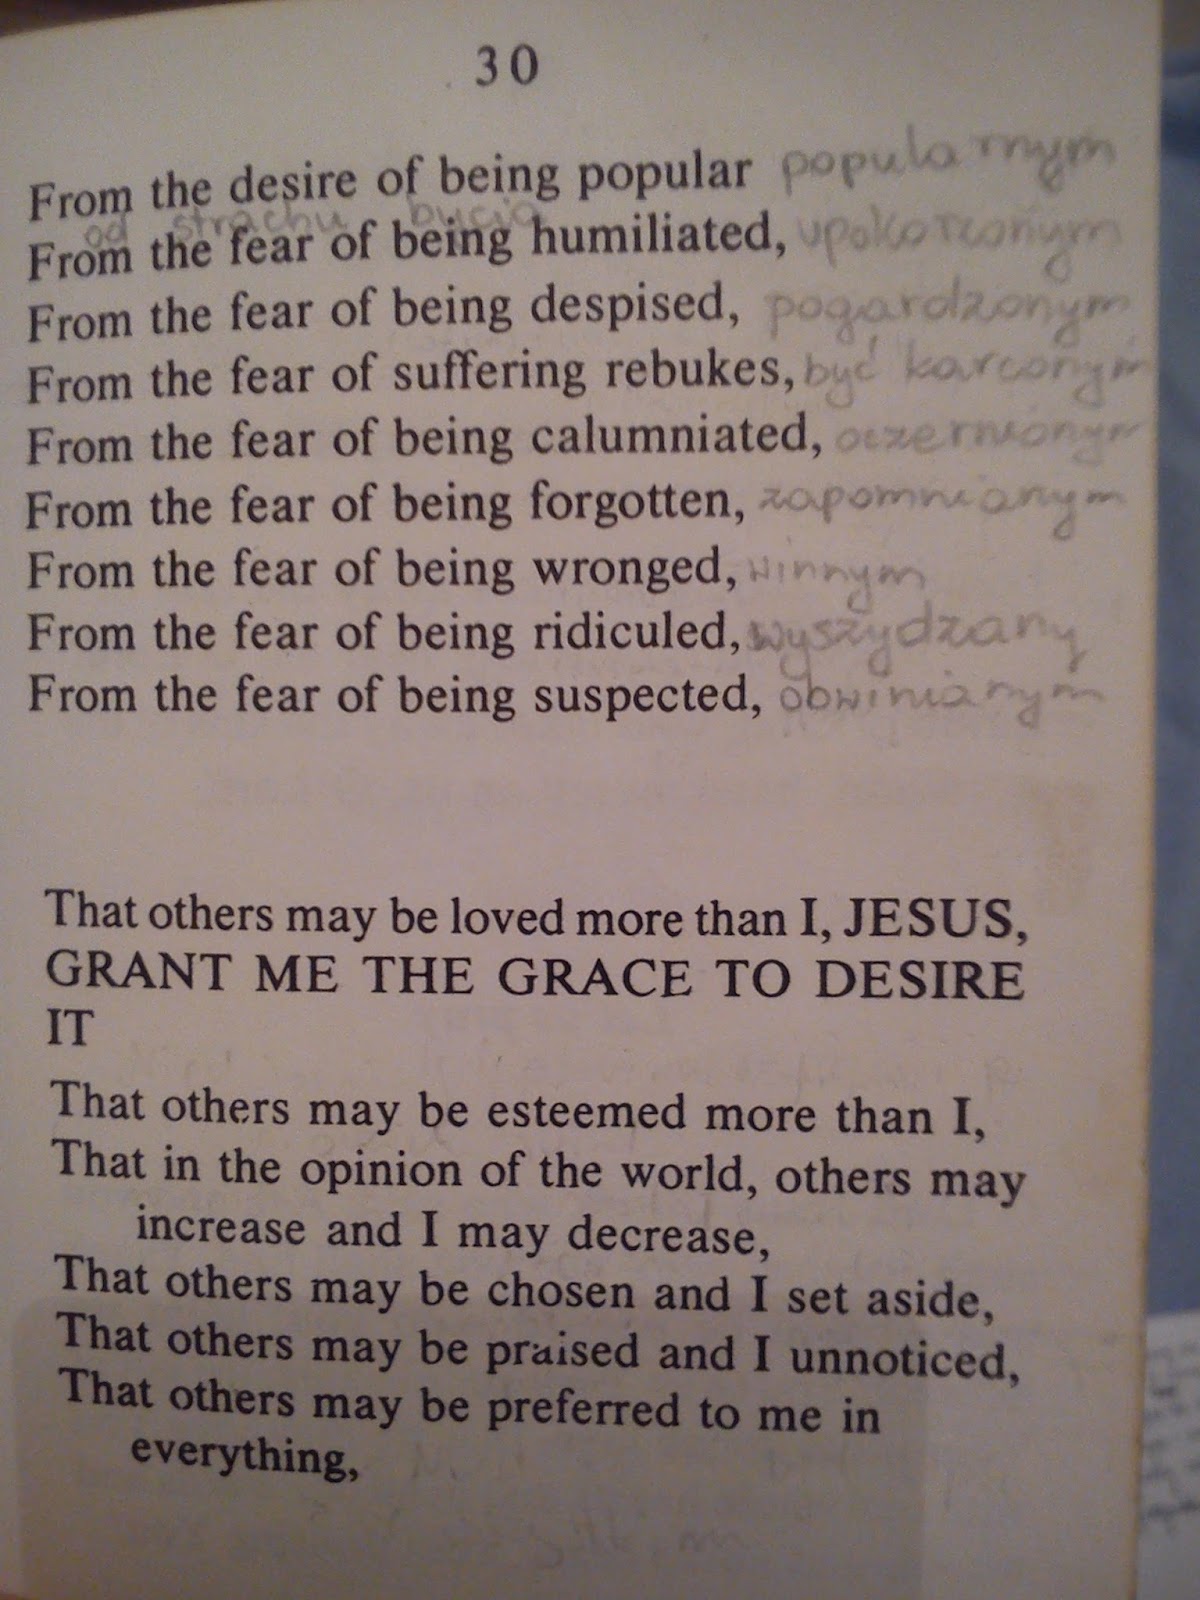 30
From the desire of being popular popularnym
od strachu bycia
From the fear of being humiliated, upokorzonym
From the fear of being despised, pogardzonym
From the fear of suffering rebukes, być karconym
From the fear of being calumniated, oczernionym
From the fear of being forgotten, zapomnianym
From the fear of being wronged, winnym
From the fear of being ridiculed, wyszydzany
From the fear of being suspected, obwinianym
That others may be loved more than I, JESUS,
GRANT ME THE GRACE TO DESIRE
IT
That others may be esteemed more than I,
That in the opinion of the world, others may
increase and I may decrease,
That others may be chosen and I set aside,
That others may be praised and I unnoticed,
That others may be preferred to me in
everything,